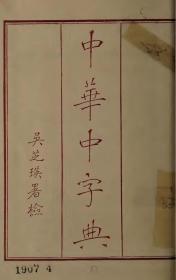 中華中字典
吳芝瑛署檢
1907 4